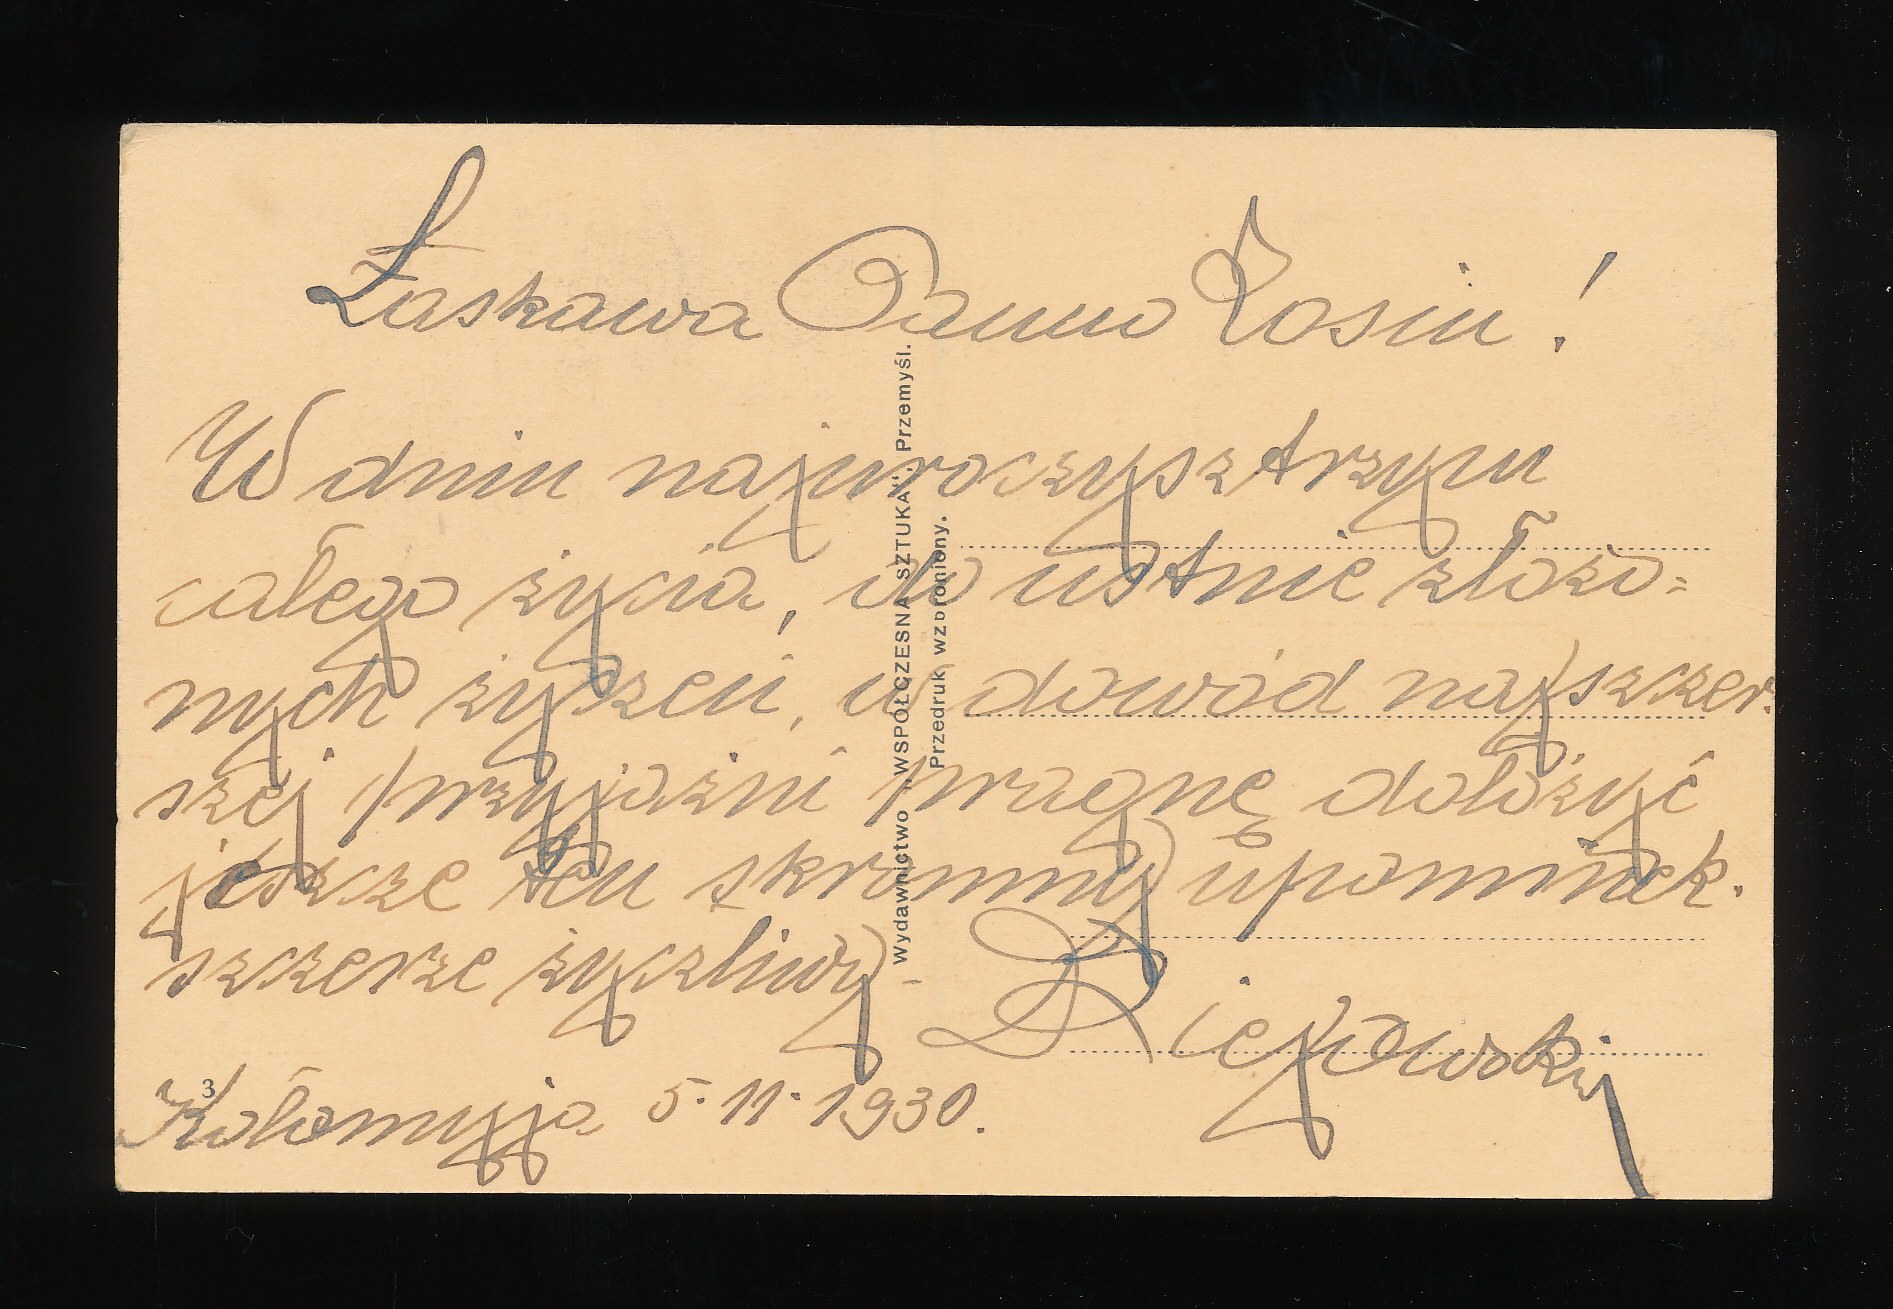 Łaskawa Panno Rosiu!
W dniu najuroczysztrzym
całego życia, do ustnie złożo=
nych życzeń, w dowód najszczer-
szej przyjaźni pragnę dołożyć
jeszcze ten skromny upominek.
szczerze życzliwy -
Kołomyja 5. 11. 1930.
3
Wydawnictwo „WSPÓŁCZESNA SZTUKA“. Przemyśl.
Przedruk wzbroniony.